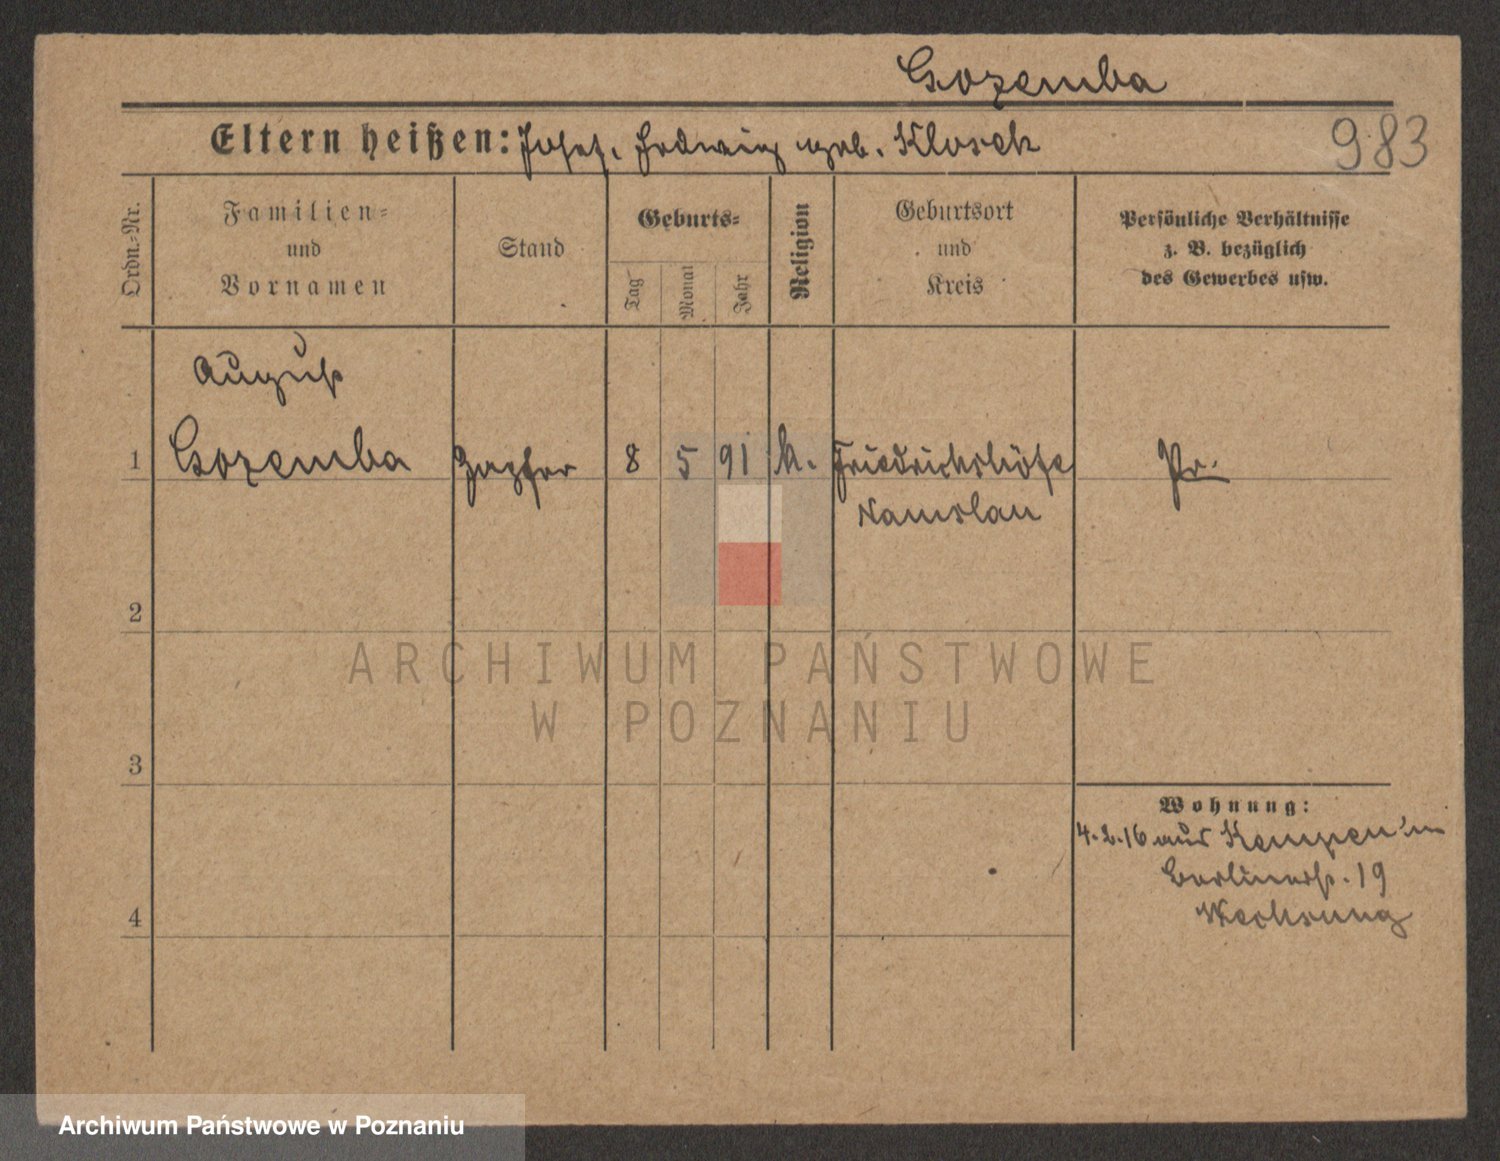 Gozemba
Eltern heißen: Josef, Hedwig geb. Klosek
983
Ordn.-Nr.
Familien-
und
Vornamen
Stand
Geburts-
Tag
Monat
Jahr
Religion
Geburtsort
und
Kreis
Persönliche Verhältnisse
z. B. bezüglich
des Gewerbes usw.
August
1 Gozemba 8 5 91 k. Friedrichshöfe Pr.
Namslau
2
3
4
Wohnung:
4.2.16 aus Kempen
Berlinerstr. 19
ARCHIWUM PAŃSTWOWE
W POZNANIU
Archiwum Państwowe w Poznaniu